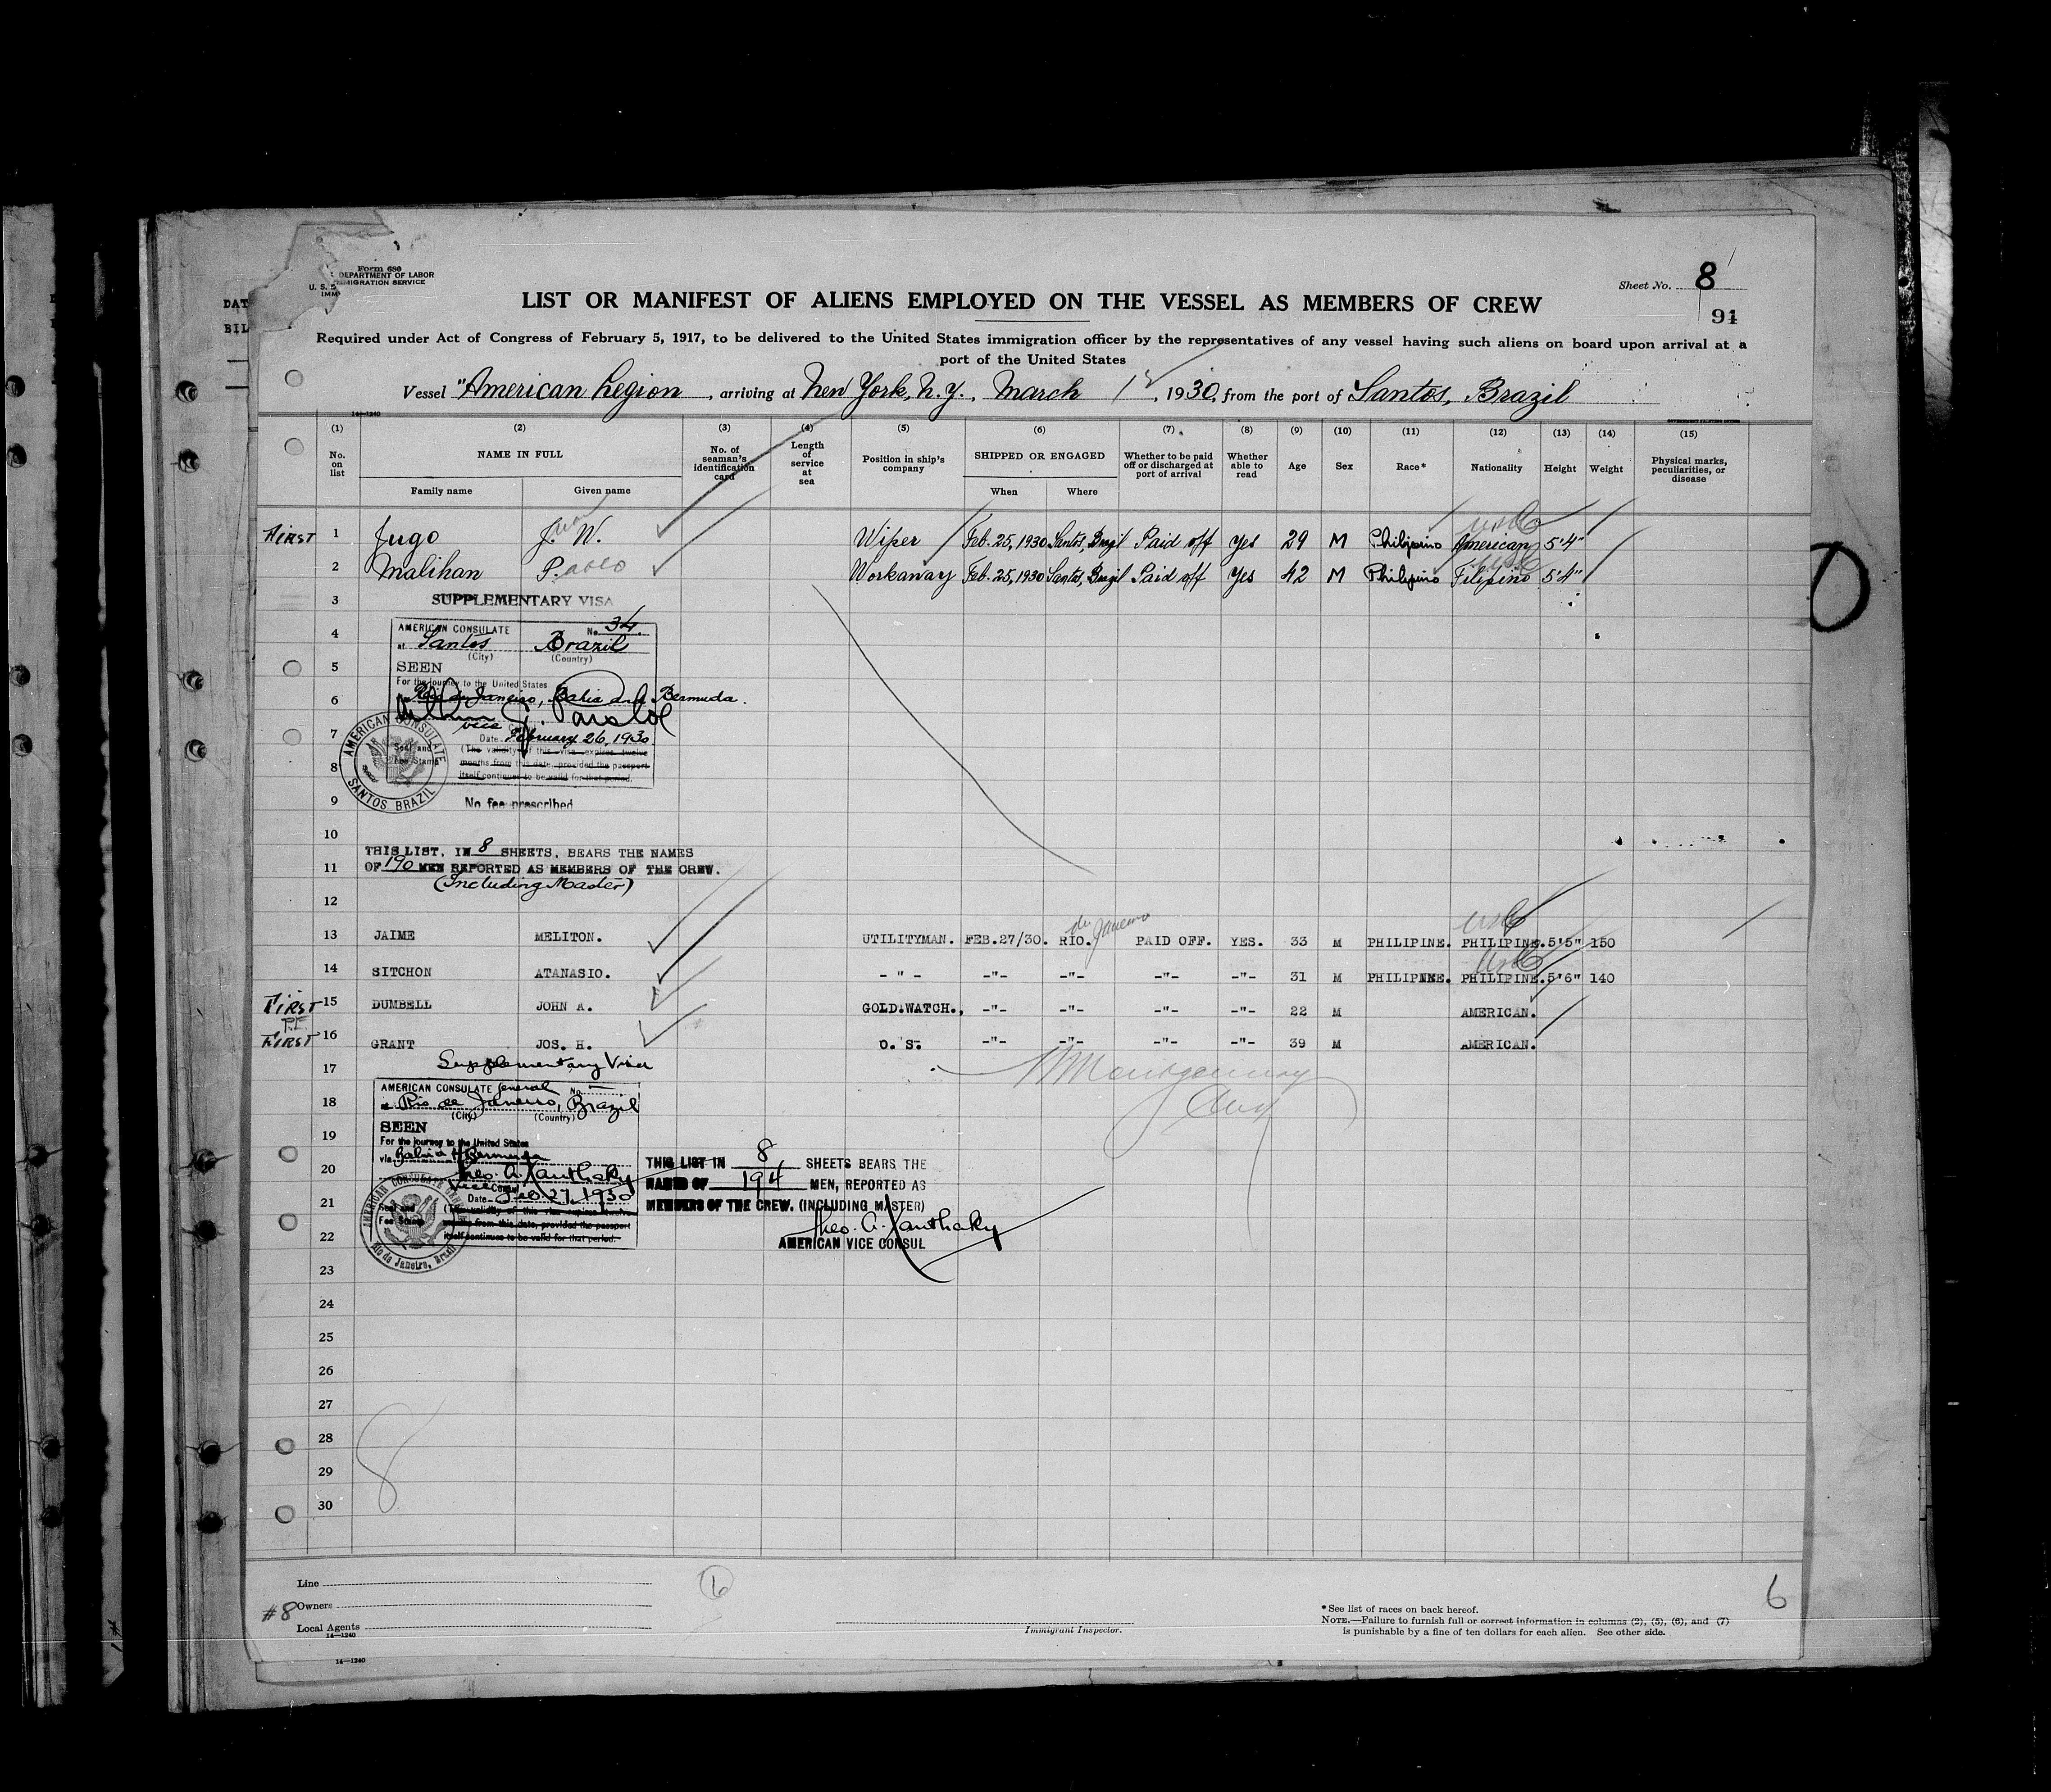 Form 680
DEPARTMENT OF LABOR
IMMIGRATION SERVICE
Sheet No. 8
91
LIST OR MANIFEST OF ALIENS EMPLOYED ON THE VESSEL AS MEMBERS OF CREW
Required under Act of Congress of February 5, 1917, to be delivered to the United States immigration officer by the representatives of any vessel having such aliens on board upon arrival at a
port of the United States
Vessel "American Legion, arriving at New York, N.Y., March 1, 1930, from the port of Santos, Brazil
14—1240
(1) (2) (3) (4) (5) (6) (7) (8) (9) (10) (11) (12) (13) (14) (15)
No. on list NAME IN FULL No. of seaman's identification card Length of service at sea Position in ship's company SHIPPED OR ENGAGED Whether to be paid off or discharged at port of arrival Whether able to read Age Sex Race* Nationality Height Weight Physical marks, peculiarities, or disease
Family name Given name When Where
FIRST 1 Jugo J. W. Wiper Feb. 25, 1930 Santos, Brazil Paid off Yes 29 M Philipino American 5'4"
2 Malihan P.ablo Workaway Feb. 25, 1930 Santos, Brazil Paid off Yes 42 M Philipino Filipino 5'4"
3 SUPPLEMENTARY VISA
4 AMERICAN CONSULATE No. 34.
at Santos Brazil
(City) (Country)
5 SEEN
For the journey to the United States
6 Rio de Janeiro, Bahia and Bermuda.
vice
7 Date February 26, 1930
(The validity of this visa expires twelve
8 months from this date, provided the passport
itself continues to be valid for that period.
Seal and
Fee Stamp
AMERICAN CONSULATE
SANTOS BRAZIL
9 No fee prescribed
10
THIS LIST, IN 8 SHEETS, BEARS THE NAMES
11 OF 190 MEN REPORTED AS MEMBERS OF THE CREW.
(Including Master)
12
de Janeiro
13 JAIME MELITON. UTILITYMAN. FEB.27/30. RIO. PAID OFF. YES. 33 M PHILIPINE. PHILIPINE. 5'5" 150
14 SITCHON ATANASIO. - " - -"- -"- -"- -"- 31 M PHILIPINE. PHILIPINE. 5'6" 140
FIRST 15 DUMBELL JOHN A. GOLD.WATCH., -"- -"- -"- -"- 22 M AMERICAN.
FIRST 16 GRANT JOS. H. O. S. -"- -"- -"- -"- 39 M AMERICAN.
17 Supplementary Visa
AMERICAN CONSULATE General No.
18 Rio de Janeiro, Brazil
(City) (Country)
19 SEEN
For the journey to the United States
via Bahia & Bermuda
20 Theo. A. Xanthaky
Vice Consul
Date Feb 27, 1930
21 (The validity of this visa expires twelve
months from this date, provided the passport
22 itself continues to be valid for that period.
Seal and
Fee Stamp
Rio de Janeiro, Brazil
THIS LIST IN 8 SHEETS BEARS THE
NAMES OF 194 MEN, REPORTED AS
MEMBERS OF THE CREW. (INCLUDING MASTER)
Theo. A. Xanthaky
AMERICAN VICE CONSUL
23
24
25
26
27
28
29
30
8
Line
#8 Owners
Local Agents
14—1240
6
Immigrant Inspector.
*See list of races on back hereof.
NOTE.—Failure to furnish full or correct information in columns (2), (5), (6), and (7)
is punishable by a fine of ten dollars for each alien. See other side.
6
14—1240